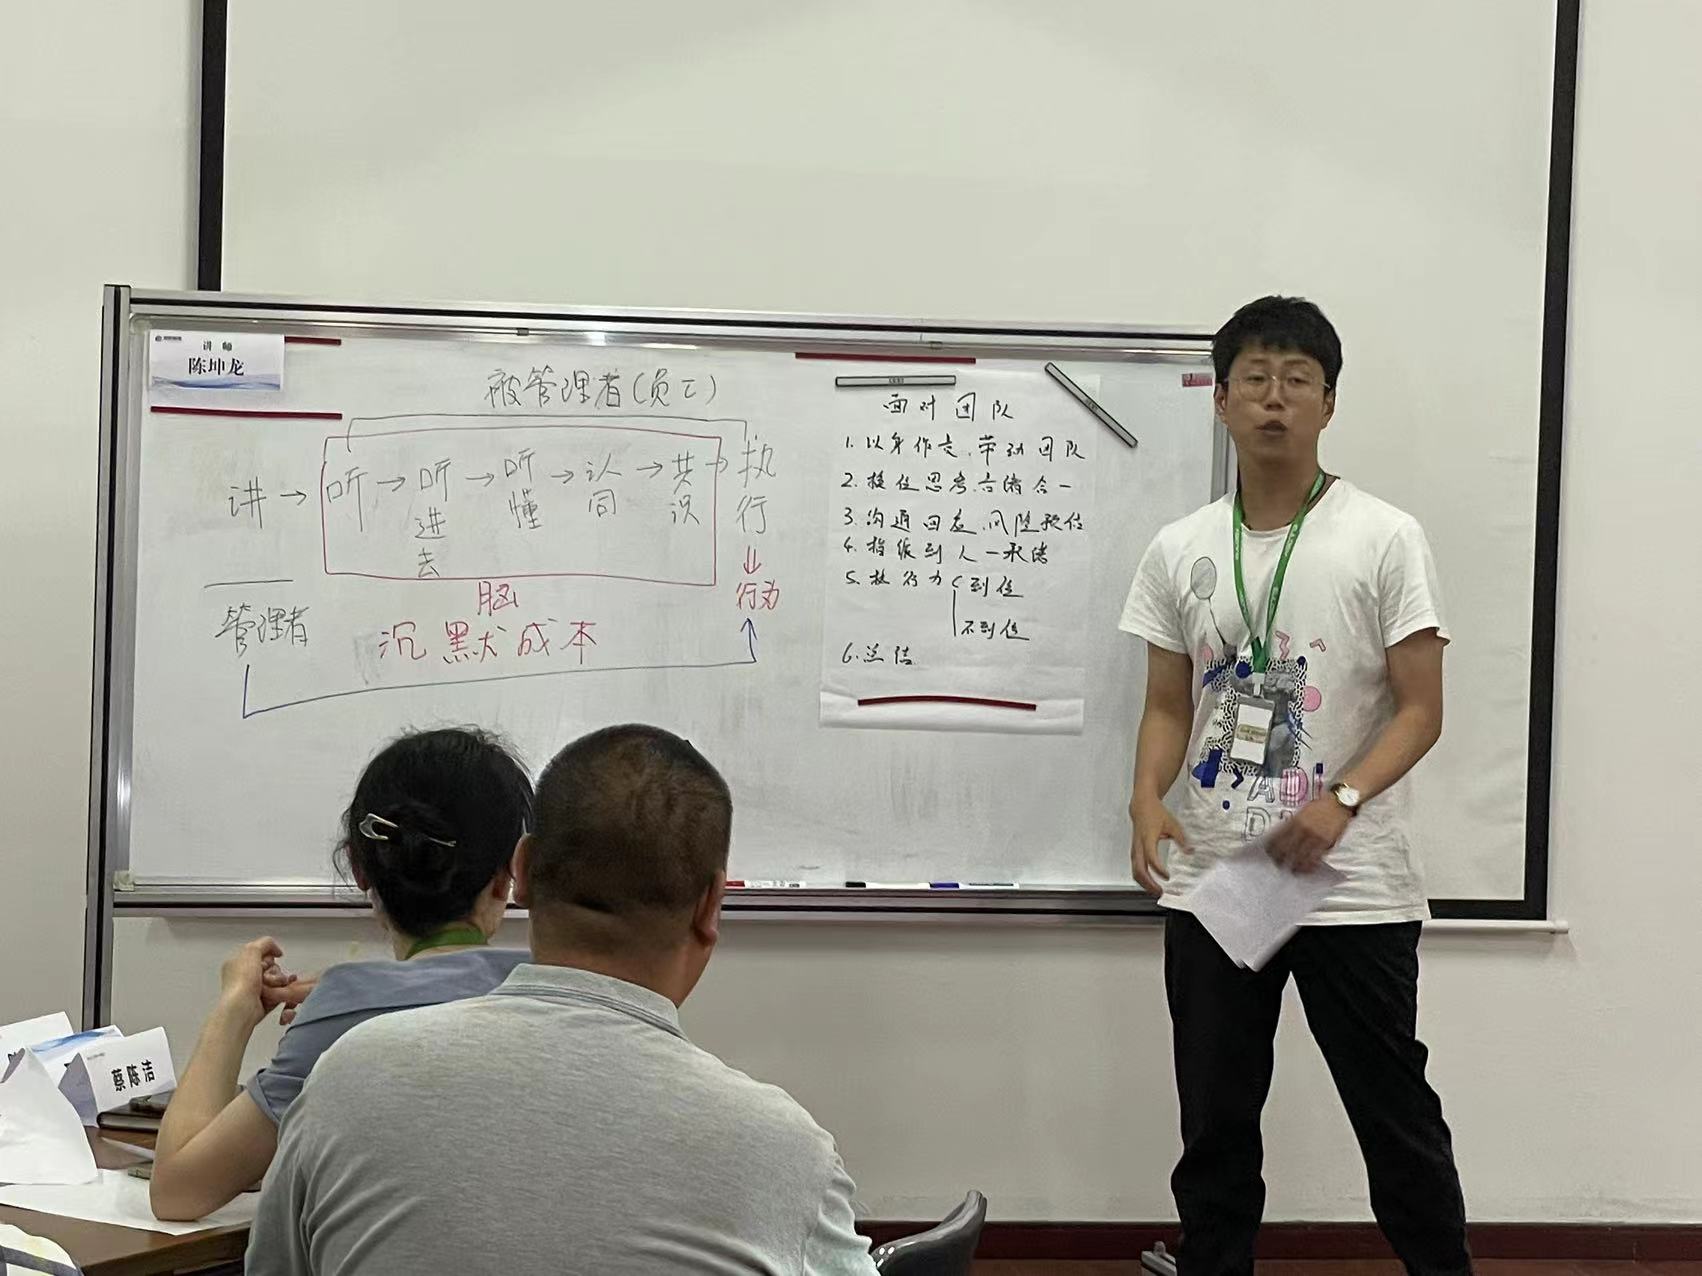 讲 师
陈坤龙
被管理者(员工)
讲→听→听进去→听懂→认同→共识→执行
⇓
行为
脑
管理者
沉默成本
面对团队
1. 以身作则、带动团队
2. 换位思考、言谈合一
3. 沟通回应、风险预估
4. 指派到人
5. 执行力 到位
不到位
6. 总结
蔡陈洁
ADI